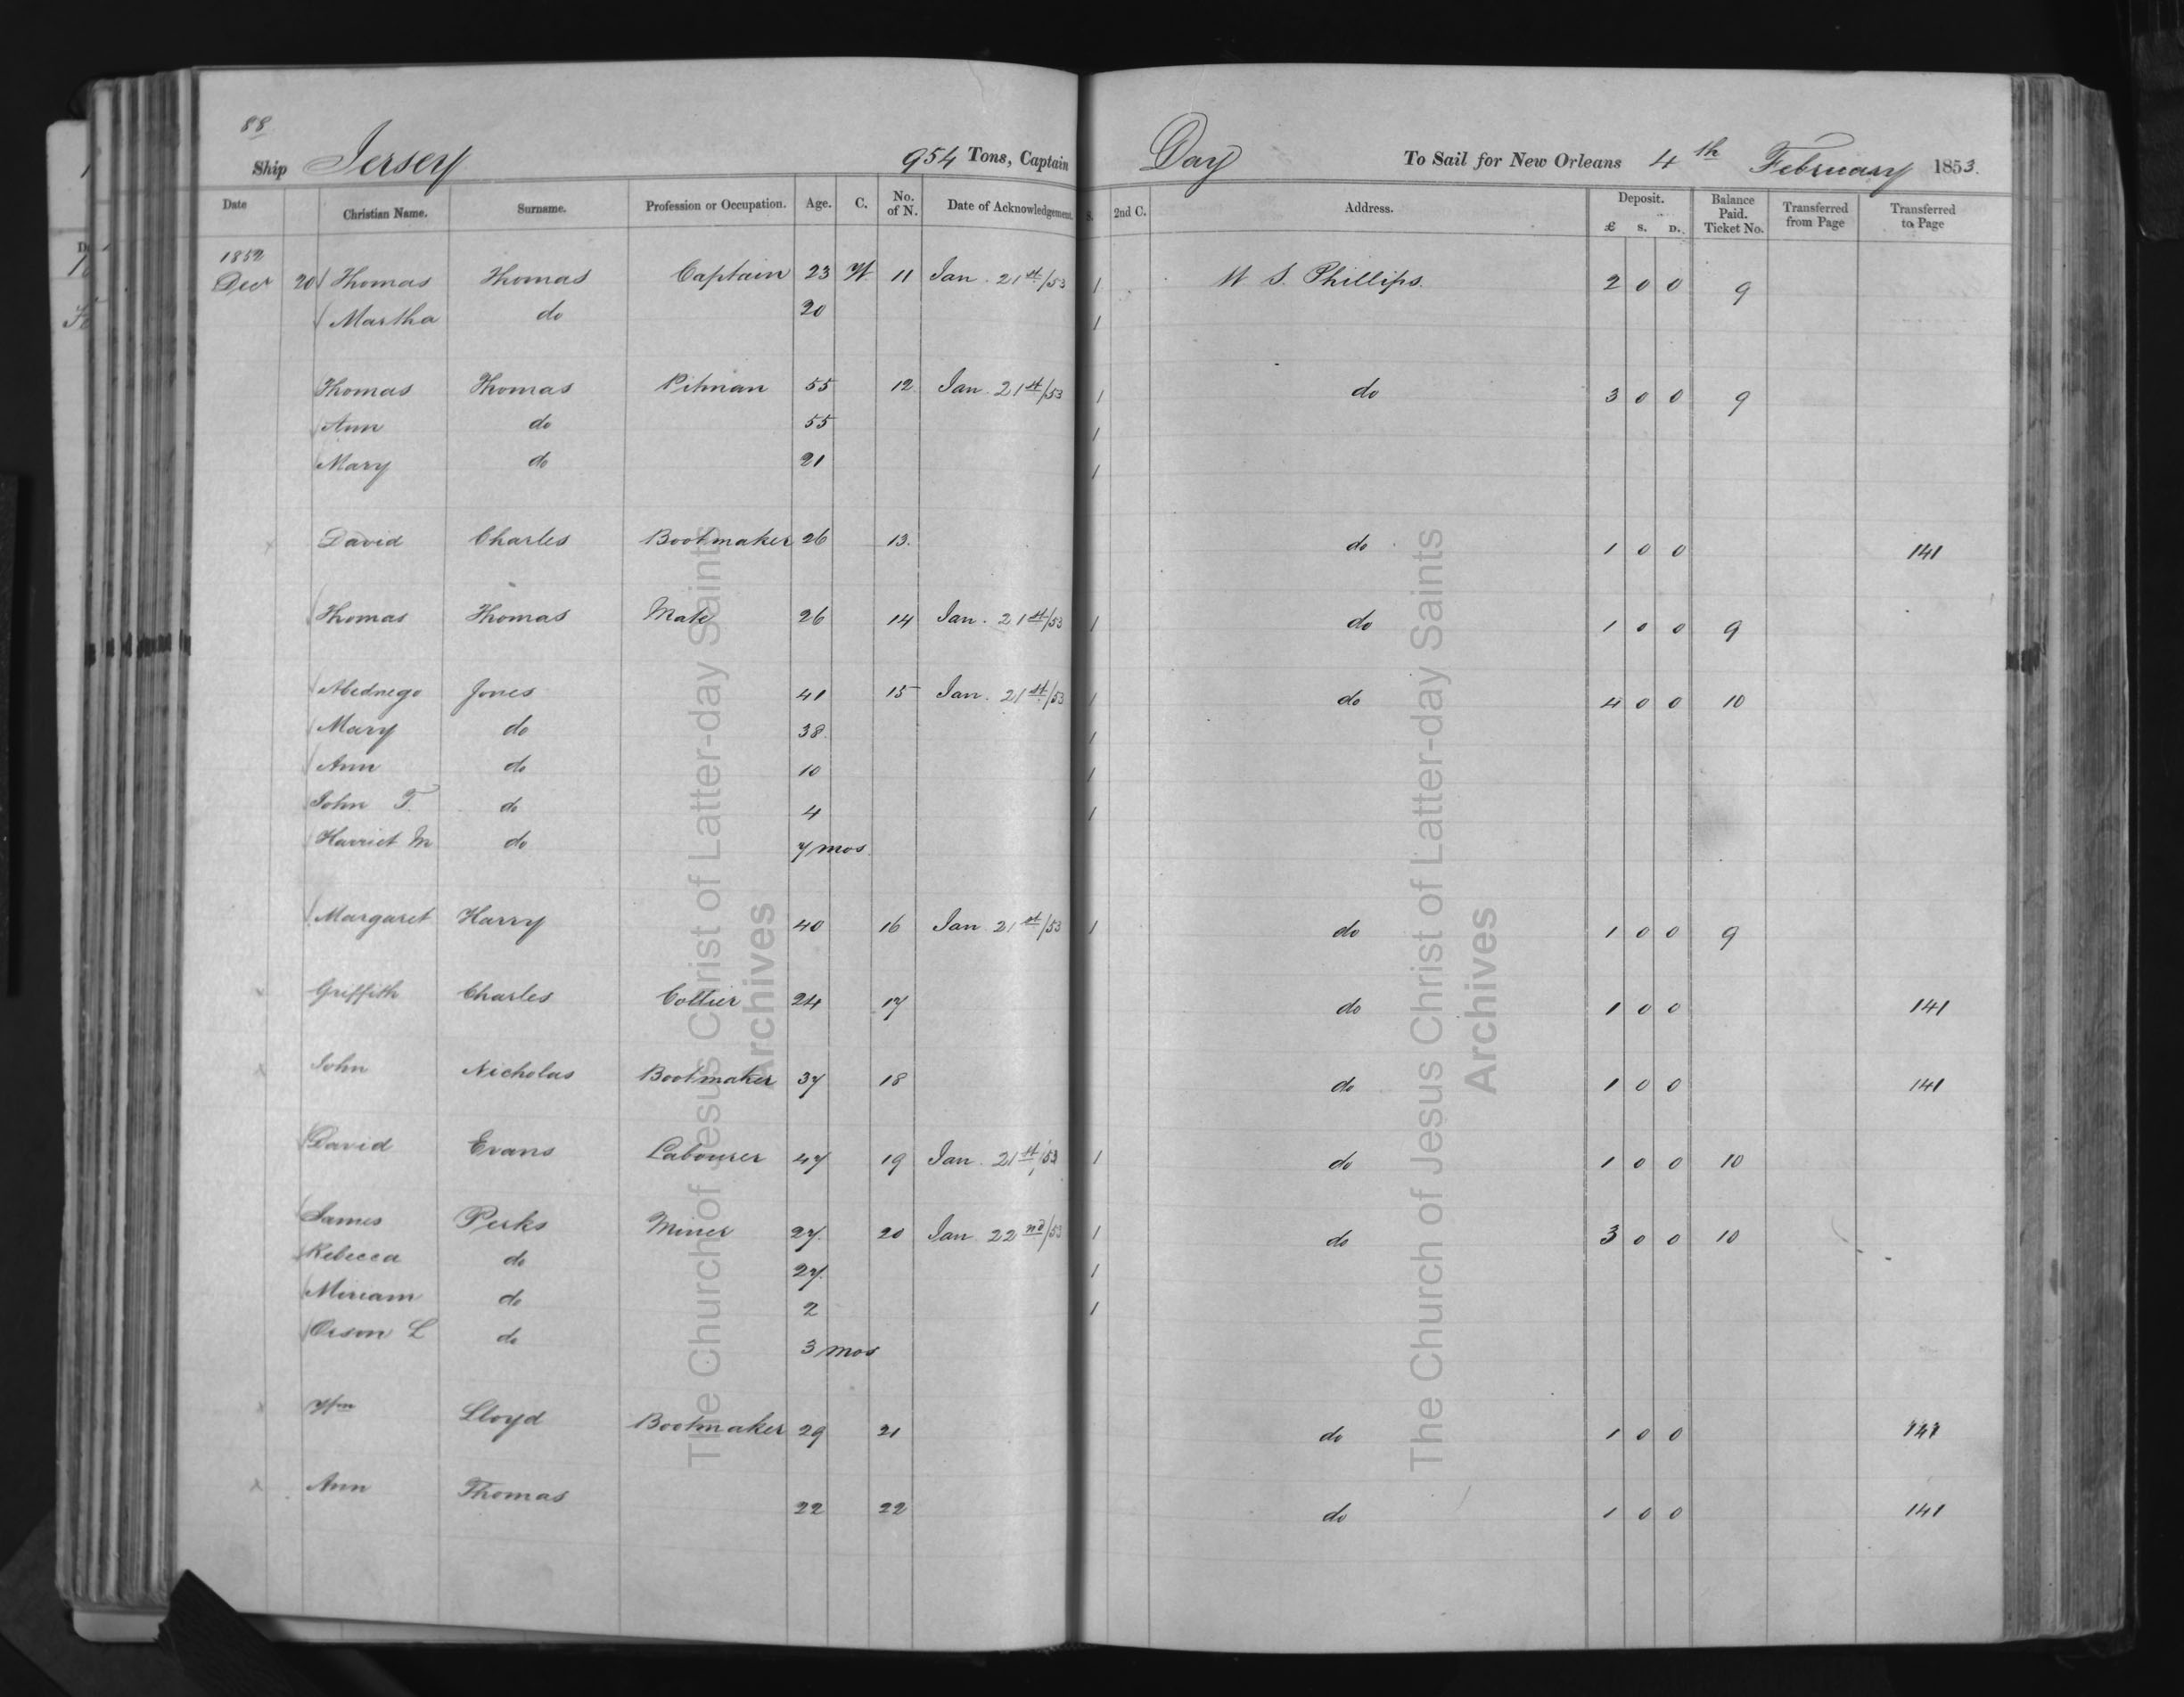 88
Ship Jersey 954 Tons, Captain Day To Sail for New Orleans 4th February 1853.
Date Christian Name. Surname. Profession or Occupation. Age. C. No. of N. Date of Acknowledgement. S. 2nd C. Address. Deposit. £ S. D. Balance Paid. Ticket No. Transferred from Page Transferred to Page
1852
Decr 20 Thomas Thomas Captain 23 W 11 Jan. 21st/53 1 W S. Phillips. 2 0 0 9
Martha do 20 1
Thomas Thomas Pitman 55 12 Jan. 21st/53 1 do 3 0 0 9
Ann do 55 1
Mary do 21 1
x David Charles Bootmaker 26 13. do 1 0 0 141
Thomas Thomas Mate 26 14 Jan. 21st/53 1 do 1 0 0 9
Abednego Jones 41 15 Jan. 21st/53 1 do 4 0 0 10
Mary do 38. 1
Ann do 10 1
John T. do 4 1
Harriet M do 7 mos.
Margaret Harry 40 16 Jan 21st/53 1 do 1 0 0 9
x Griffith Charles Collier 24 17 do 1 0 0 141
x John Nicholas Bootmaker 37 18 do 1 0 0 141
David Evans Labourer 47 19 Jan. 21st/53 1 do 1 0 0 10
James Perks Miner 27. 20 Jan 22nd/53 1 do 3 0 0 10
Rebecca do 27. 1
Miriam do 2 1
Orson L do 3 mos
x Wm Lloyd Bootmaker 29 21 do 1 0 0 141
x Ann Thomas 22 22 do 1 0 0 141
The Church of Jesus Christ of Latter-day Saints
Archives
The Church of Jesus Christ of Latter-day Saints
Archives